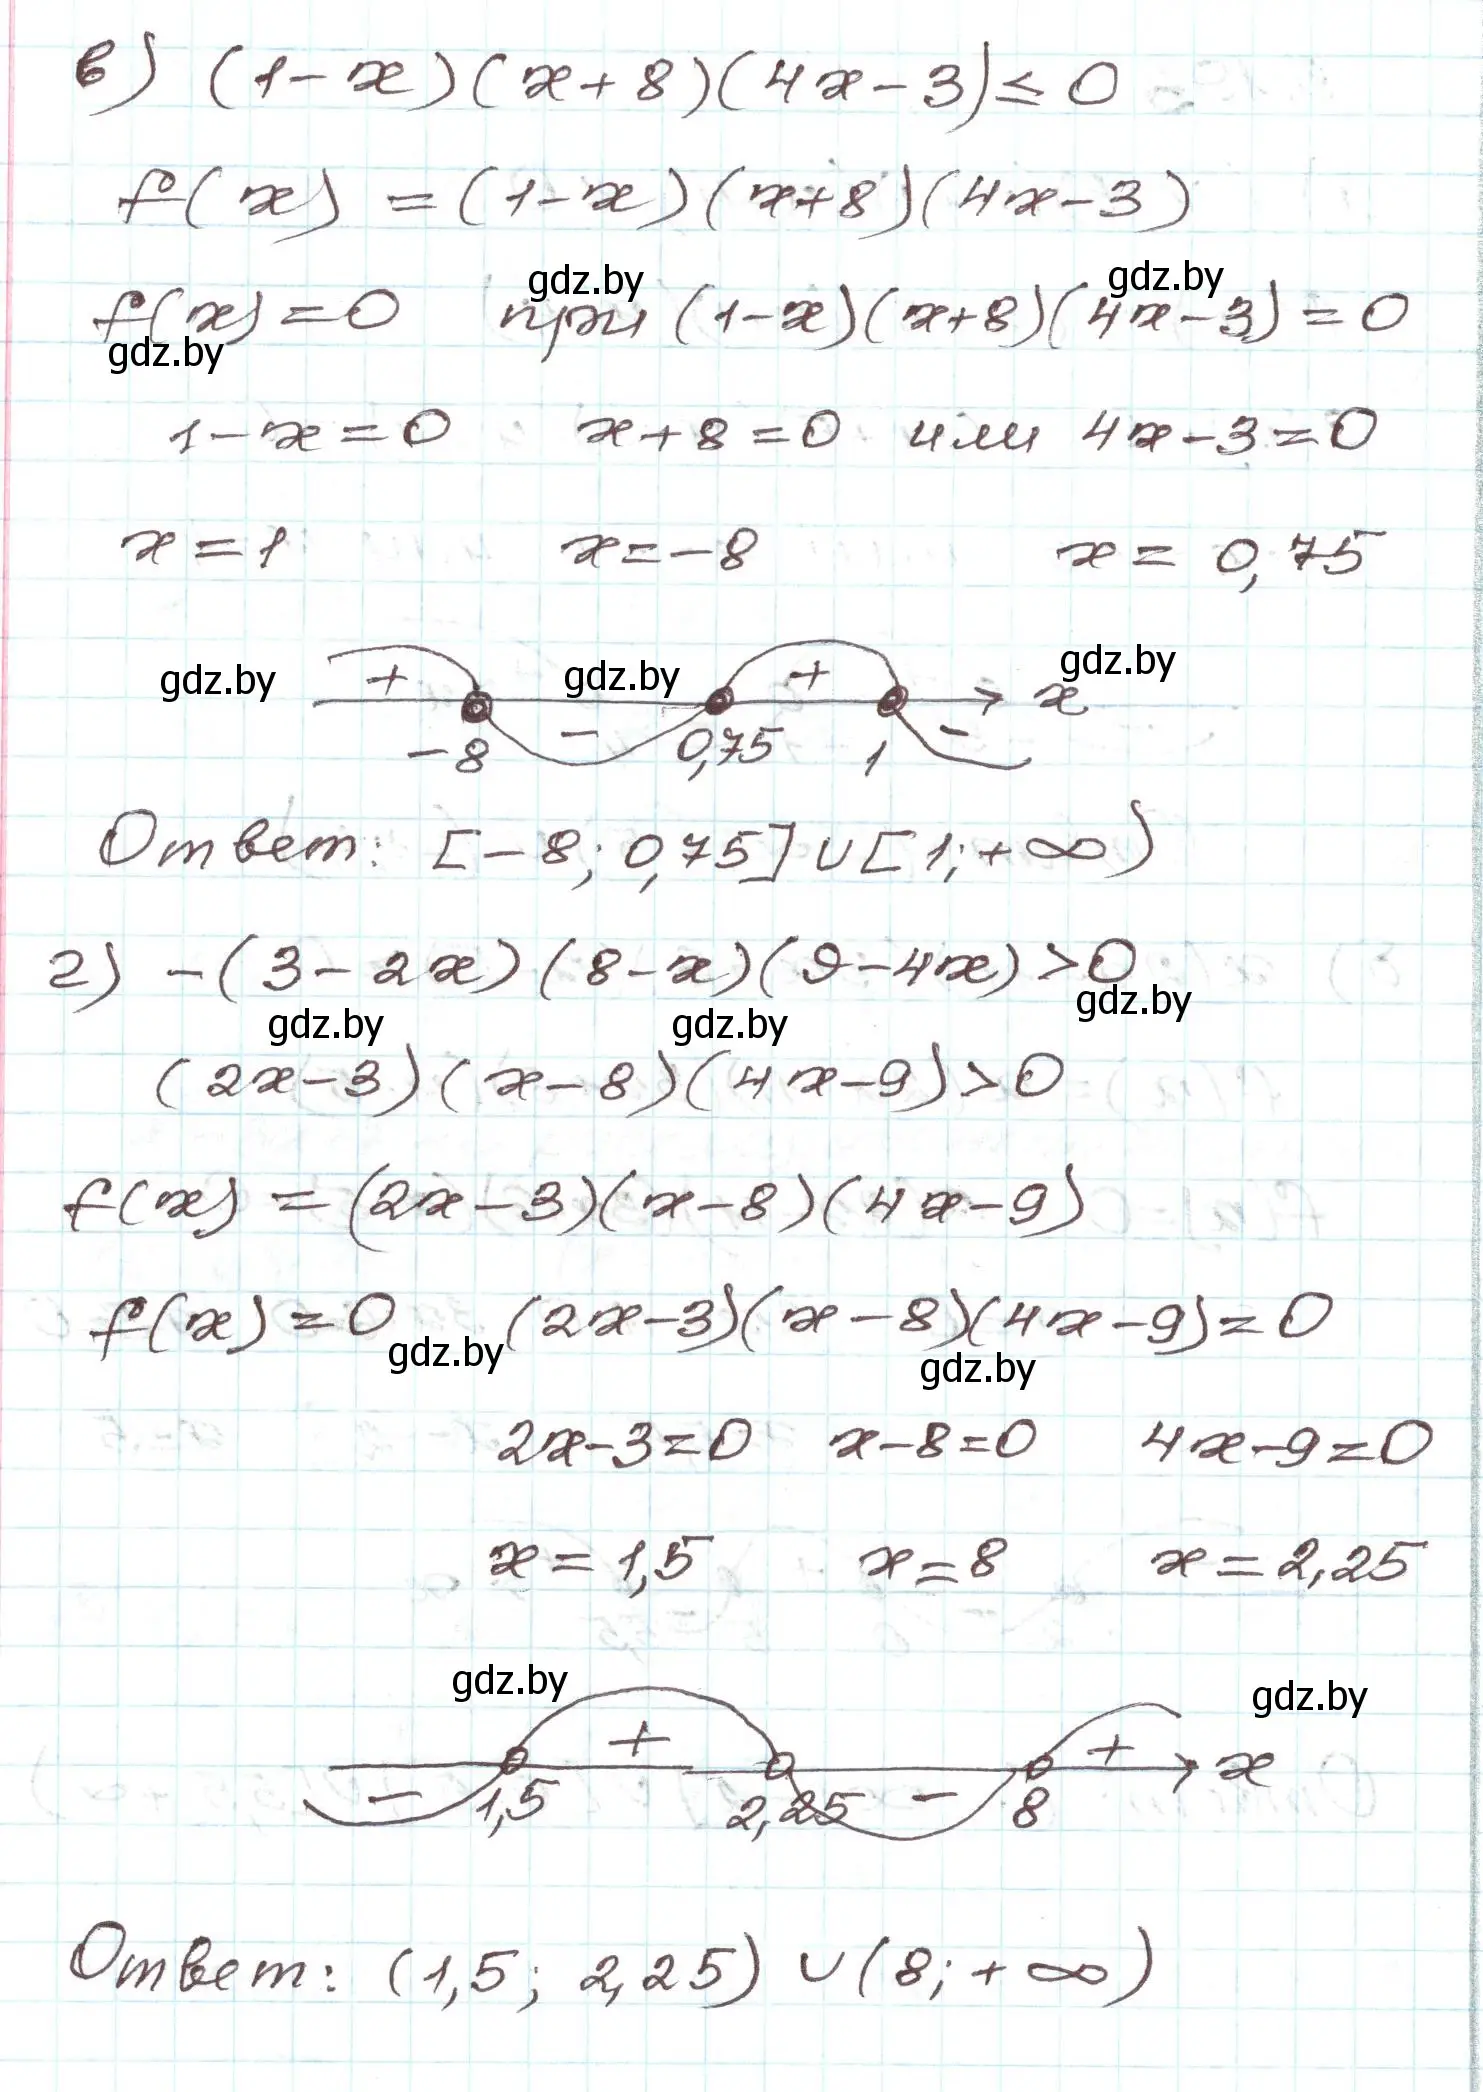 в) (1-x)(x+8)(4x-3)≤0
f(x) = (1-x)(x+8)(4x-3)
gdz.by gdz.by
f(x)=0 при (1-x)(x+8)(4x-3)=0
gdz.by
1-x=0 x+8=0 или 4x-3=0
x=1 x=-8 x= 0,75
gdz.by + gdz.by + gdz.by x
-8 - 0,75 1 -
Ответ: [-8; 0,75]∪[1; +∞)
г) -(3-2x)(8-x)(9-4x)>0
gdz.by gdz.by gdz.by
(2x-3)(x-8)(4x-9)>0
f(x) = (2x-3)(x-8)(4x-9)
f(x)=0 (2x-3)(x-8)(4x-9)=0
gdz.by gdz.by
2x-3=0 x-8=0 4x-9=0
x=1,5 x=8 x=2,25
gdz.by gdz.by
+ + x
- 1,5 2,25 - 8
Ответ: (1,5; 2,25) ∪ (8; +∞)